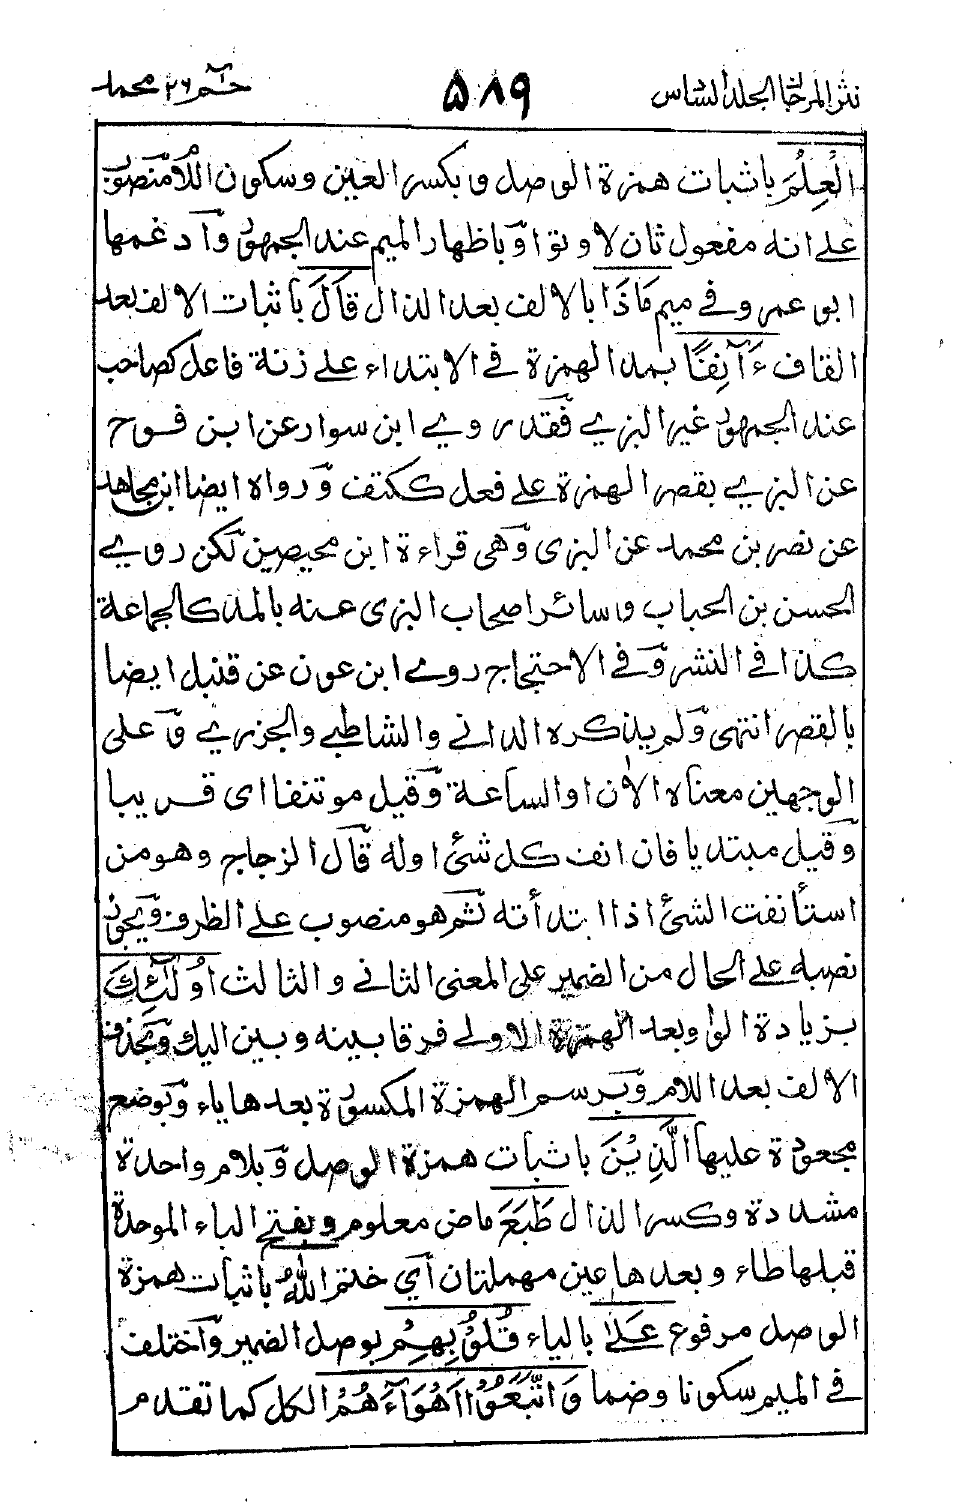 نثر المرجان الجلد السادس ۵۸۹ حٰم ۲۶ محمد
الْعِلْمَ باثبات همزة الوصل وبكسر العين وسكون اللام منصوب
على انه مفعول ثان لاوتوا وباظهار الميم عند الجمهور وادغمها
ابو عمرو في ميم مَاذَا بالالف بعد الذال قَالَ باثبات الالف بعد
القاف ءَآنِفًا بمد الهمزة في الابتداء على زنة فاعل كصاحب
عند الجمهور غير البزي فقد روي ابن سوار عن ابن فرح
عن البزي بقصر الهمزة على فعل ككتف ورواه ايضا ابن مجاهد
عن نضر بن محمد عن البزى وهى قراءة ابن محيصين لكن روي
الحسن بن الحباب وسائر اصحاب البزى عنه بالمد كالجماعة
كذا في النشر وفي الاحتجاج روى ابن عون عن قنبل ايضا
بالقصر انتهى ولم يذكره الداني والشاطبي والجزري وعلى
الوجهين معناه الأن او الساعة وقيل موتنفا اى قريبا
وقيل مبتديا فان انف كل شئ اوله قال الزجاج وهو من
استأنفت الشئ اذا ابتدأته ثم هو منصوب على الظرف ويجوز
نصبه على الحال من الضمير على المعنى الثاني والثالث اُولٰٓئِكَ
بزيادة الواو بعد الهمزة الاولى فرقا بينه وبين اليك وبحذف
الالف بعد اللام وبرسم الهمزة المكسورة بعدها ياء وبوضع
مجعودة عليها الَّذِيْنَ باثبات همزة الوصل وبلام واحدة
مشددة وكسر الذال طَبَعَ ماض معلوم وبفتح الباء الموحدة
قبلها طاء وبعدها عين مهملتان اي ختم اللّٰهُ باثبات همزة
الوصل مرفوع عَلٰى بالياء قُلُوْبِهِمْ بوصل الضمير واختلف
في الميم سكونا وضما وَاتَّبَعُوْٓا اَهْوَآءَهُمْ الكل كما تقدم